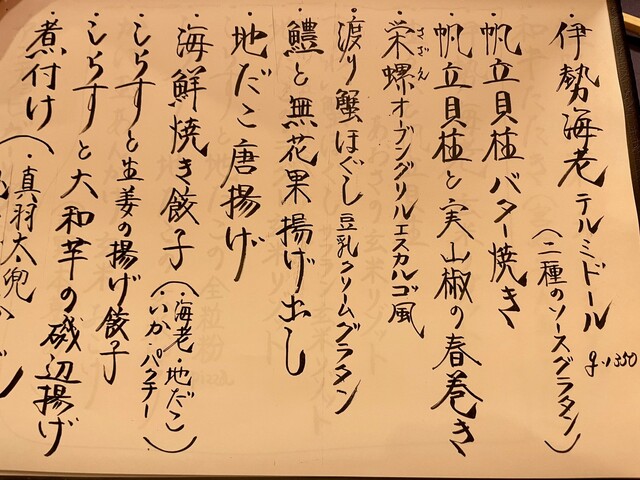 ・伊勢海老テルミドール
(二種のソースグラタン)
g・1350
・帆立貝柱バター焼き
・帆立貝柱と実山椒の春巻き
・栄螺オーブングリルエスカルゴ風
さざえ
・渡り蟹ほぐし豆乳クリームグラタン
・鱧と無花果揚げ出し
・地だこ唐揚げ
・海鮮焼き餃子(・海老・地だこ
・いか・パクチー)
・しらすと生姜の揚げ餃子
・しらすと大和芋の磯辺揚げ
・煮付け(・真羽太兜